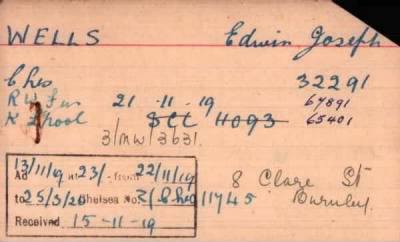 WELLS Edwin Joseph
Ches 32291
R W Fus 21-11-19 67891
K L'pool SCL 4093 65401
3/MW/3631.
Ad 13/11/19 at 23/- from 22/11/19
to 25/3/20 Chelsea No. 2/Ches 11745
Received 15-11-19
8 Clare St
Burnley.